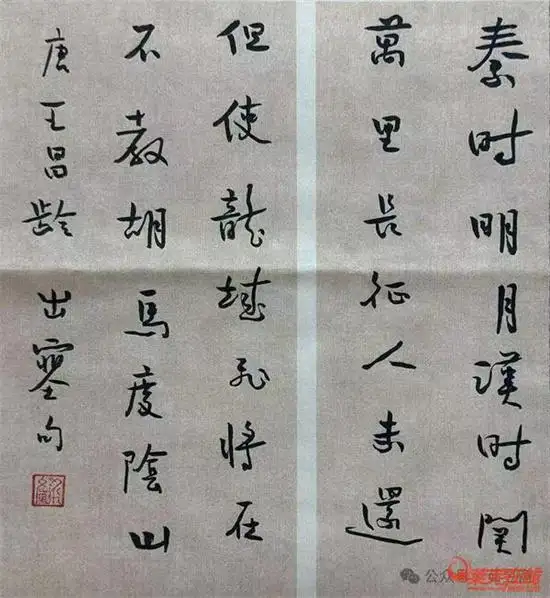 秦时明月漢时関
萬里长征人未還
但使龍城飛將在
不教胡馬度陰山
唐王昌齡出塞句
公众号